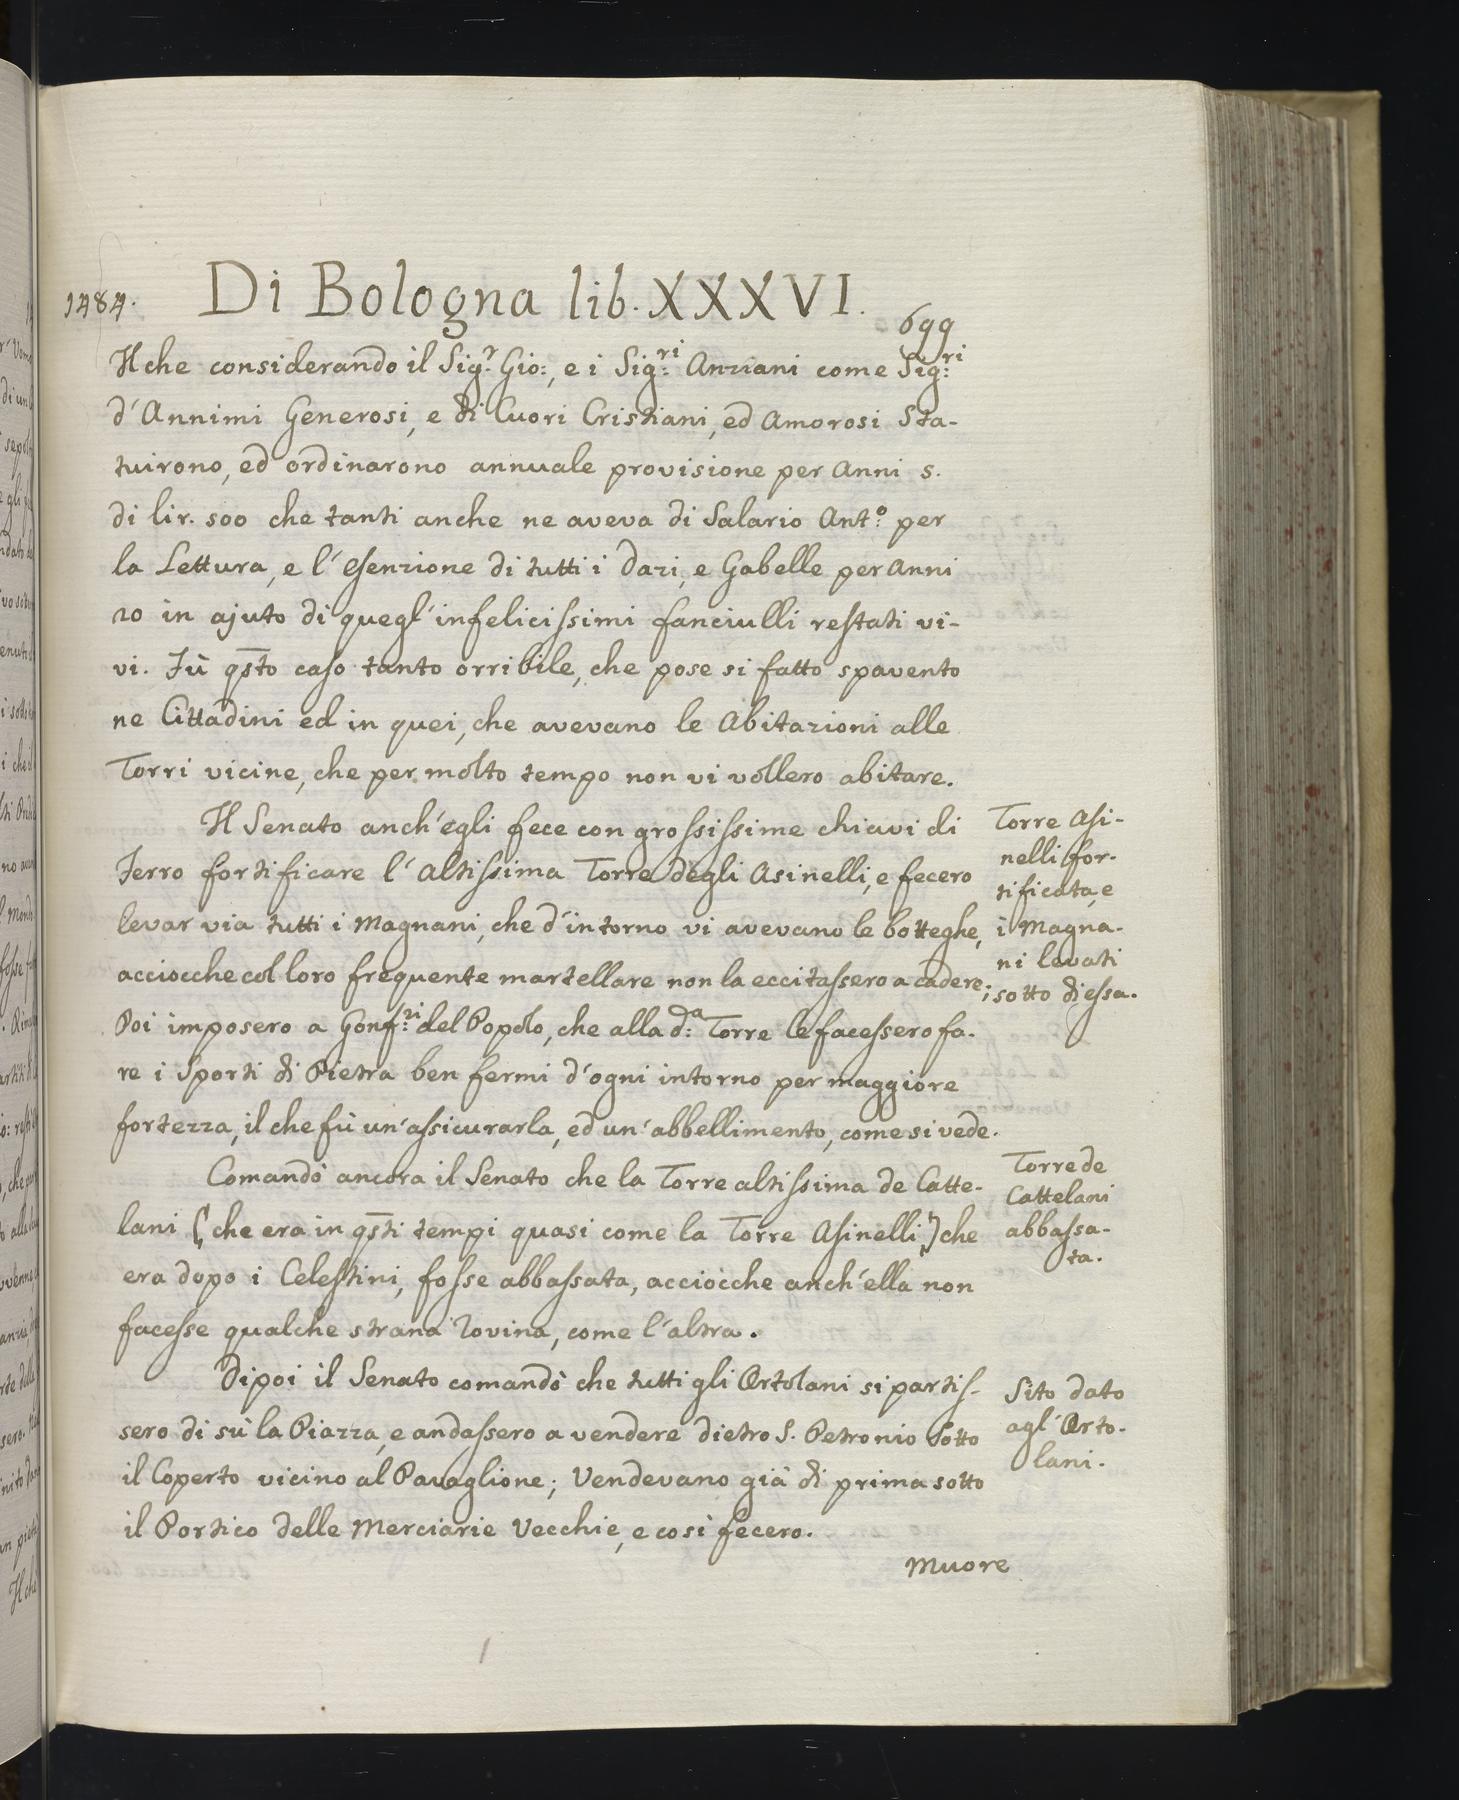 1484. Di Bologna lib. XXXVI. 699
Il che considerando il Sig.r Gio:, e i Sig:ri Anziani come Sig:ri
d'Annimi Generosi, e di Cuori Cristiani, ed Amorosi Sta-
tuirono, ed ordinarono annuale provisione per Anni 5.
di lir. 500 che tanti anche ne aveva di Salario Ant:o per
la Lettura, e l'Esenzione di tutti i Dazi, e Gabelle per Anni
20 in ajuto di quegl'infelicissimi fanciulli restati vi-
vi. Fù qsto caso tanto orribile, che pose si fatto spavento
ne Cittadini ed in quei, che avevano le Abitazioni alle
Torri vicine, che per molto tempo non vi vollero abitare.
Il Senato anch'egli fece con grossissime chiavi di
Ferro fortificare l'Altissima Torre degli Asinelli, e fecero
levar via tutti i Magnani, che d'intorno vi avevano le botteghe,
acciocche col loro frequente martellare non la eccitassero a cadere;
Poi imposero a Gonf:ri del Popolo, che alla d:a Torre le facessero fa-
re i Sporti di Pietra ben fermi d'ogni intorno per maggiore
fortezza, il che fù un'assicurarla, ed un'abbellimento, come si vede.
Comandò ancora il Senato che la Torre altissima de Catte-
lani (che era in qsti tempi quasi come la Torre Asinelli) che
era dopo i Celestini, fosse abbassata, acciocche anch'ella non
facesse qualche strana rovina, come l'altra.
Dipoi il Senato comandò che tutti gli Ortolani si partis-
sero di sù la Piazza, e andassero a vendere dietro S. Petronio sotto
il Coperto vicino al Pavaglione; Vendevano già di prima sotto
il Portico delle Merciarie Vecchie, e così fecero.
Muore
Torre Asi-
nelli for-
tificata, e
i Magna-
ni levati
sotto di essa.
Torre de
Cattelani
abbassa-
ta.
Sito dato
agl'Orto-
lani.